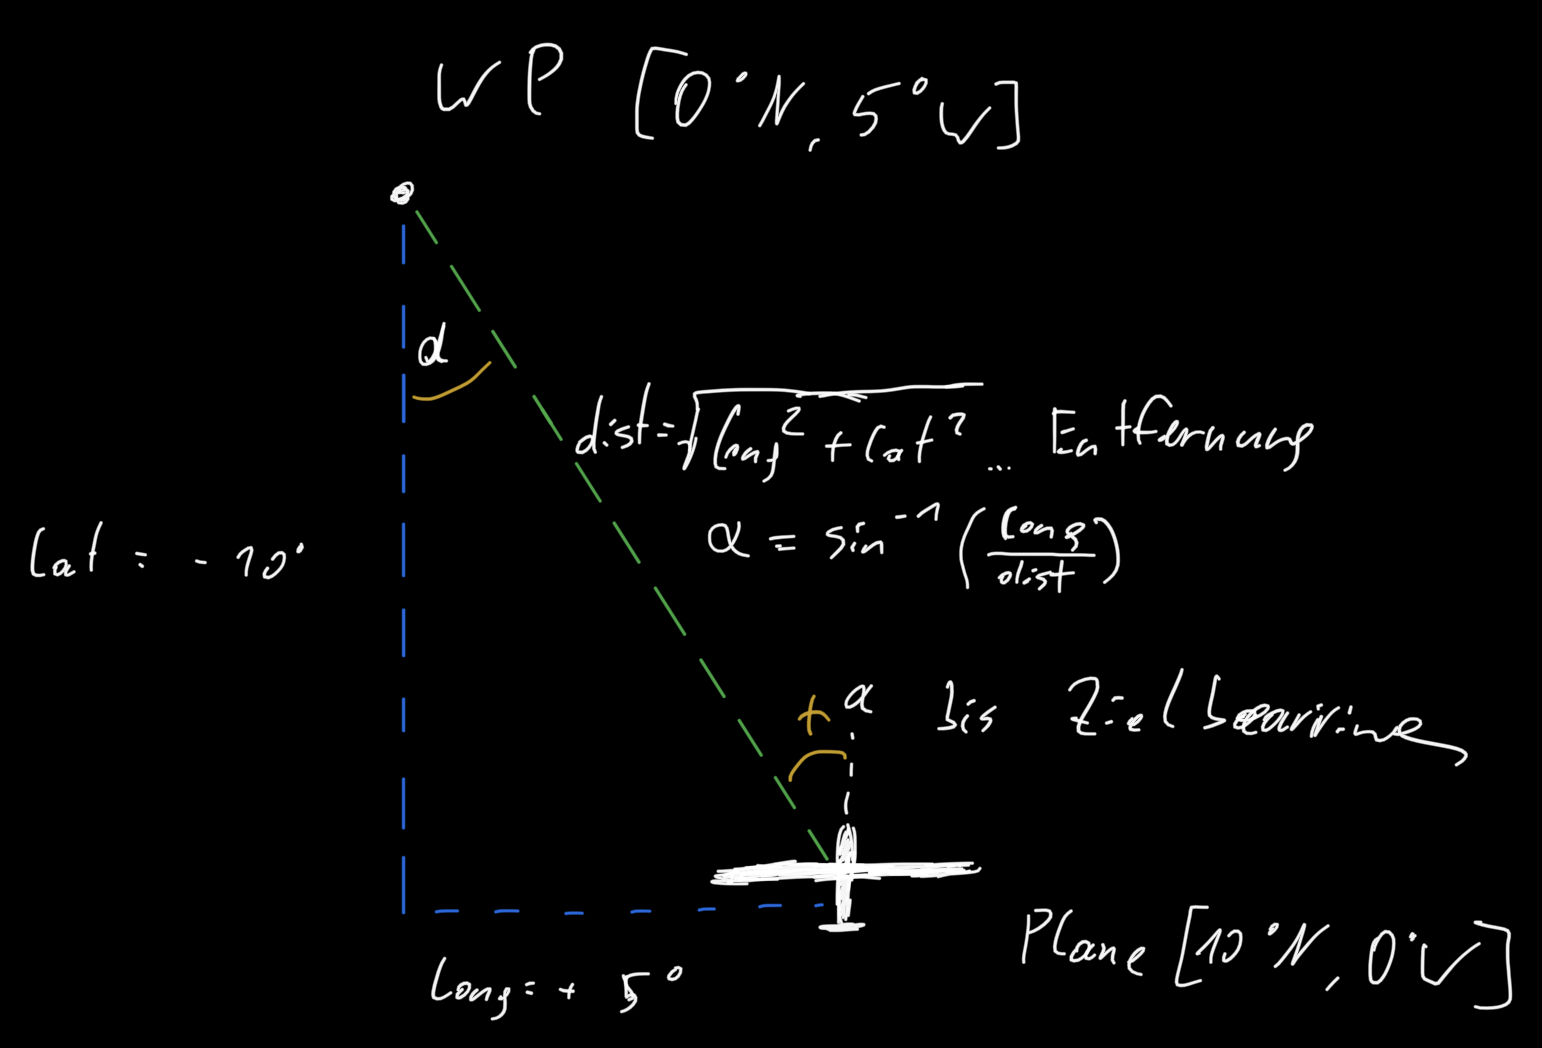 WP [0°N, 5°W]
α
dist = √(long² + lat²) ... Entfernung
α = sin⁻¹ (long/dist)
lat = - 10°
+ α bis Zielbearing
Plane [10°N, 0°W]
long = + 5°